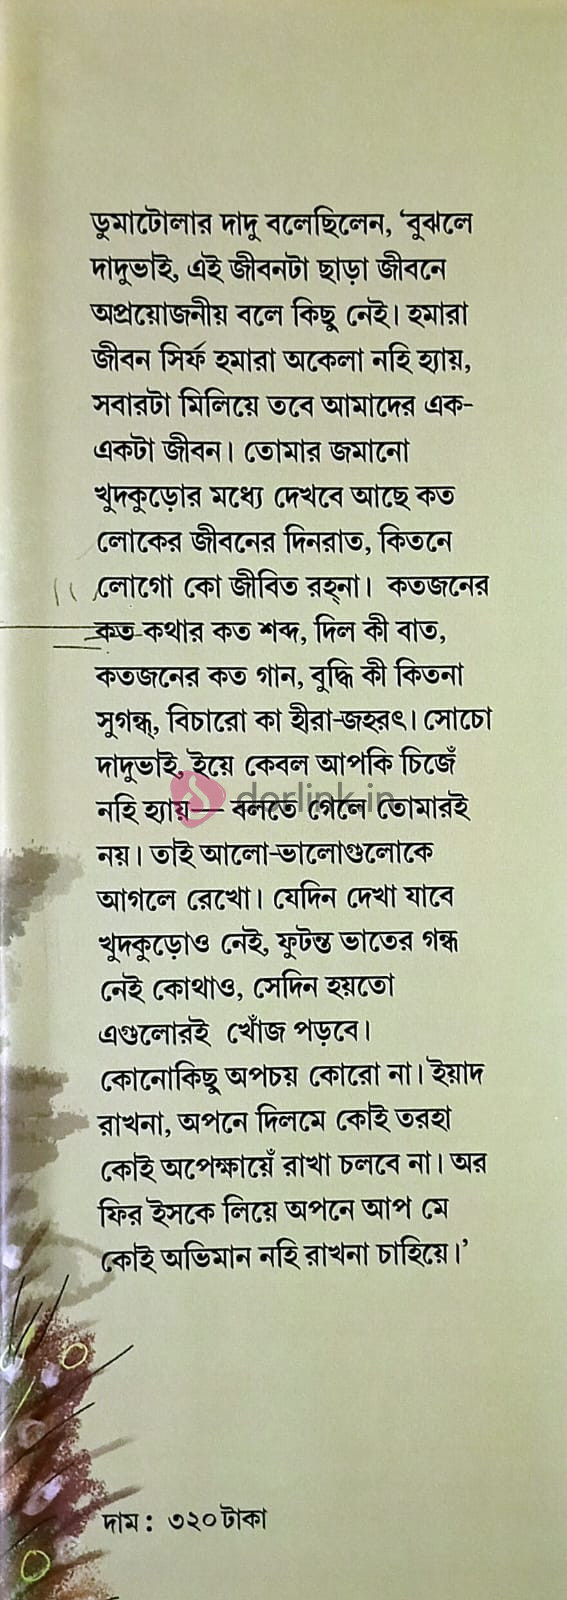 ডুমাটোলার দাদু বলেছিলেন, 'বুঝলে
দাদুভাই, এই জীবনটা ছাড়া জীবনে
অপ্রয়োজনীয় বলে কিছু নেই। হমারা
জীবন সির্ফ হমারা অকেলা নহি হ্যায়,
সবারটা মিলিয়ে তবে আমাদের এক-
একটা জীবন। তোমার জমানো
খুদকুড়োর মধ্যে দেখবে আছে কত
লোকের জীবনের দিনরাত, কিতনে
লোগো কো জীবিত রহ্‌না। কতজনের
কত কথার কত শব্দ, দিল কী বাত,
কতজনের কত গান, বুদ্ধি কী কিতনা
সুগন্ধ, বিচারো কা হীরা-জহরৎ। সোচো
দাদুভাই, ইয়ে কেবল আপকি চিজেঁ
নহি হ্যায়— বলতে গেলে তোমারই
নয়। তাই আলো-ভালোগুলোকে
আগলে রেখো। যেদিন দেখা যাবে
খুদকুড়োও নেই, ফুটন্ত ভাতের গন্ধ
নেই কোথাও, সেদিন হয়তো
এগুলোরই খোঁজ পড়বে।
কোনোকিছু অপচয় কোরো না। ইয়াদ
রাখনা, অপনে দিলমে কোই তরহা
কোই অপেক্ষায়েঁ রাখা চলবে না। অর
ফির ইসকে লিয়ে অপনে আপ মে
কোই অভিমান নহি রাখনা চাহিয়ে।'
dorlink.in
দাম : ৩২০ টাকা